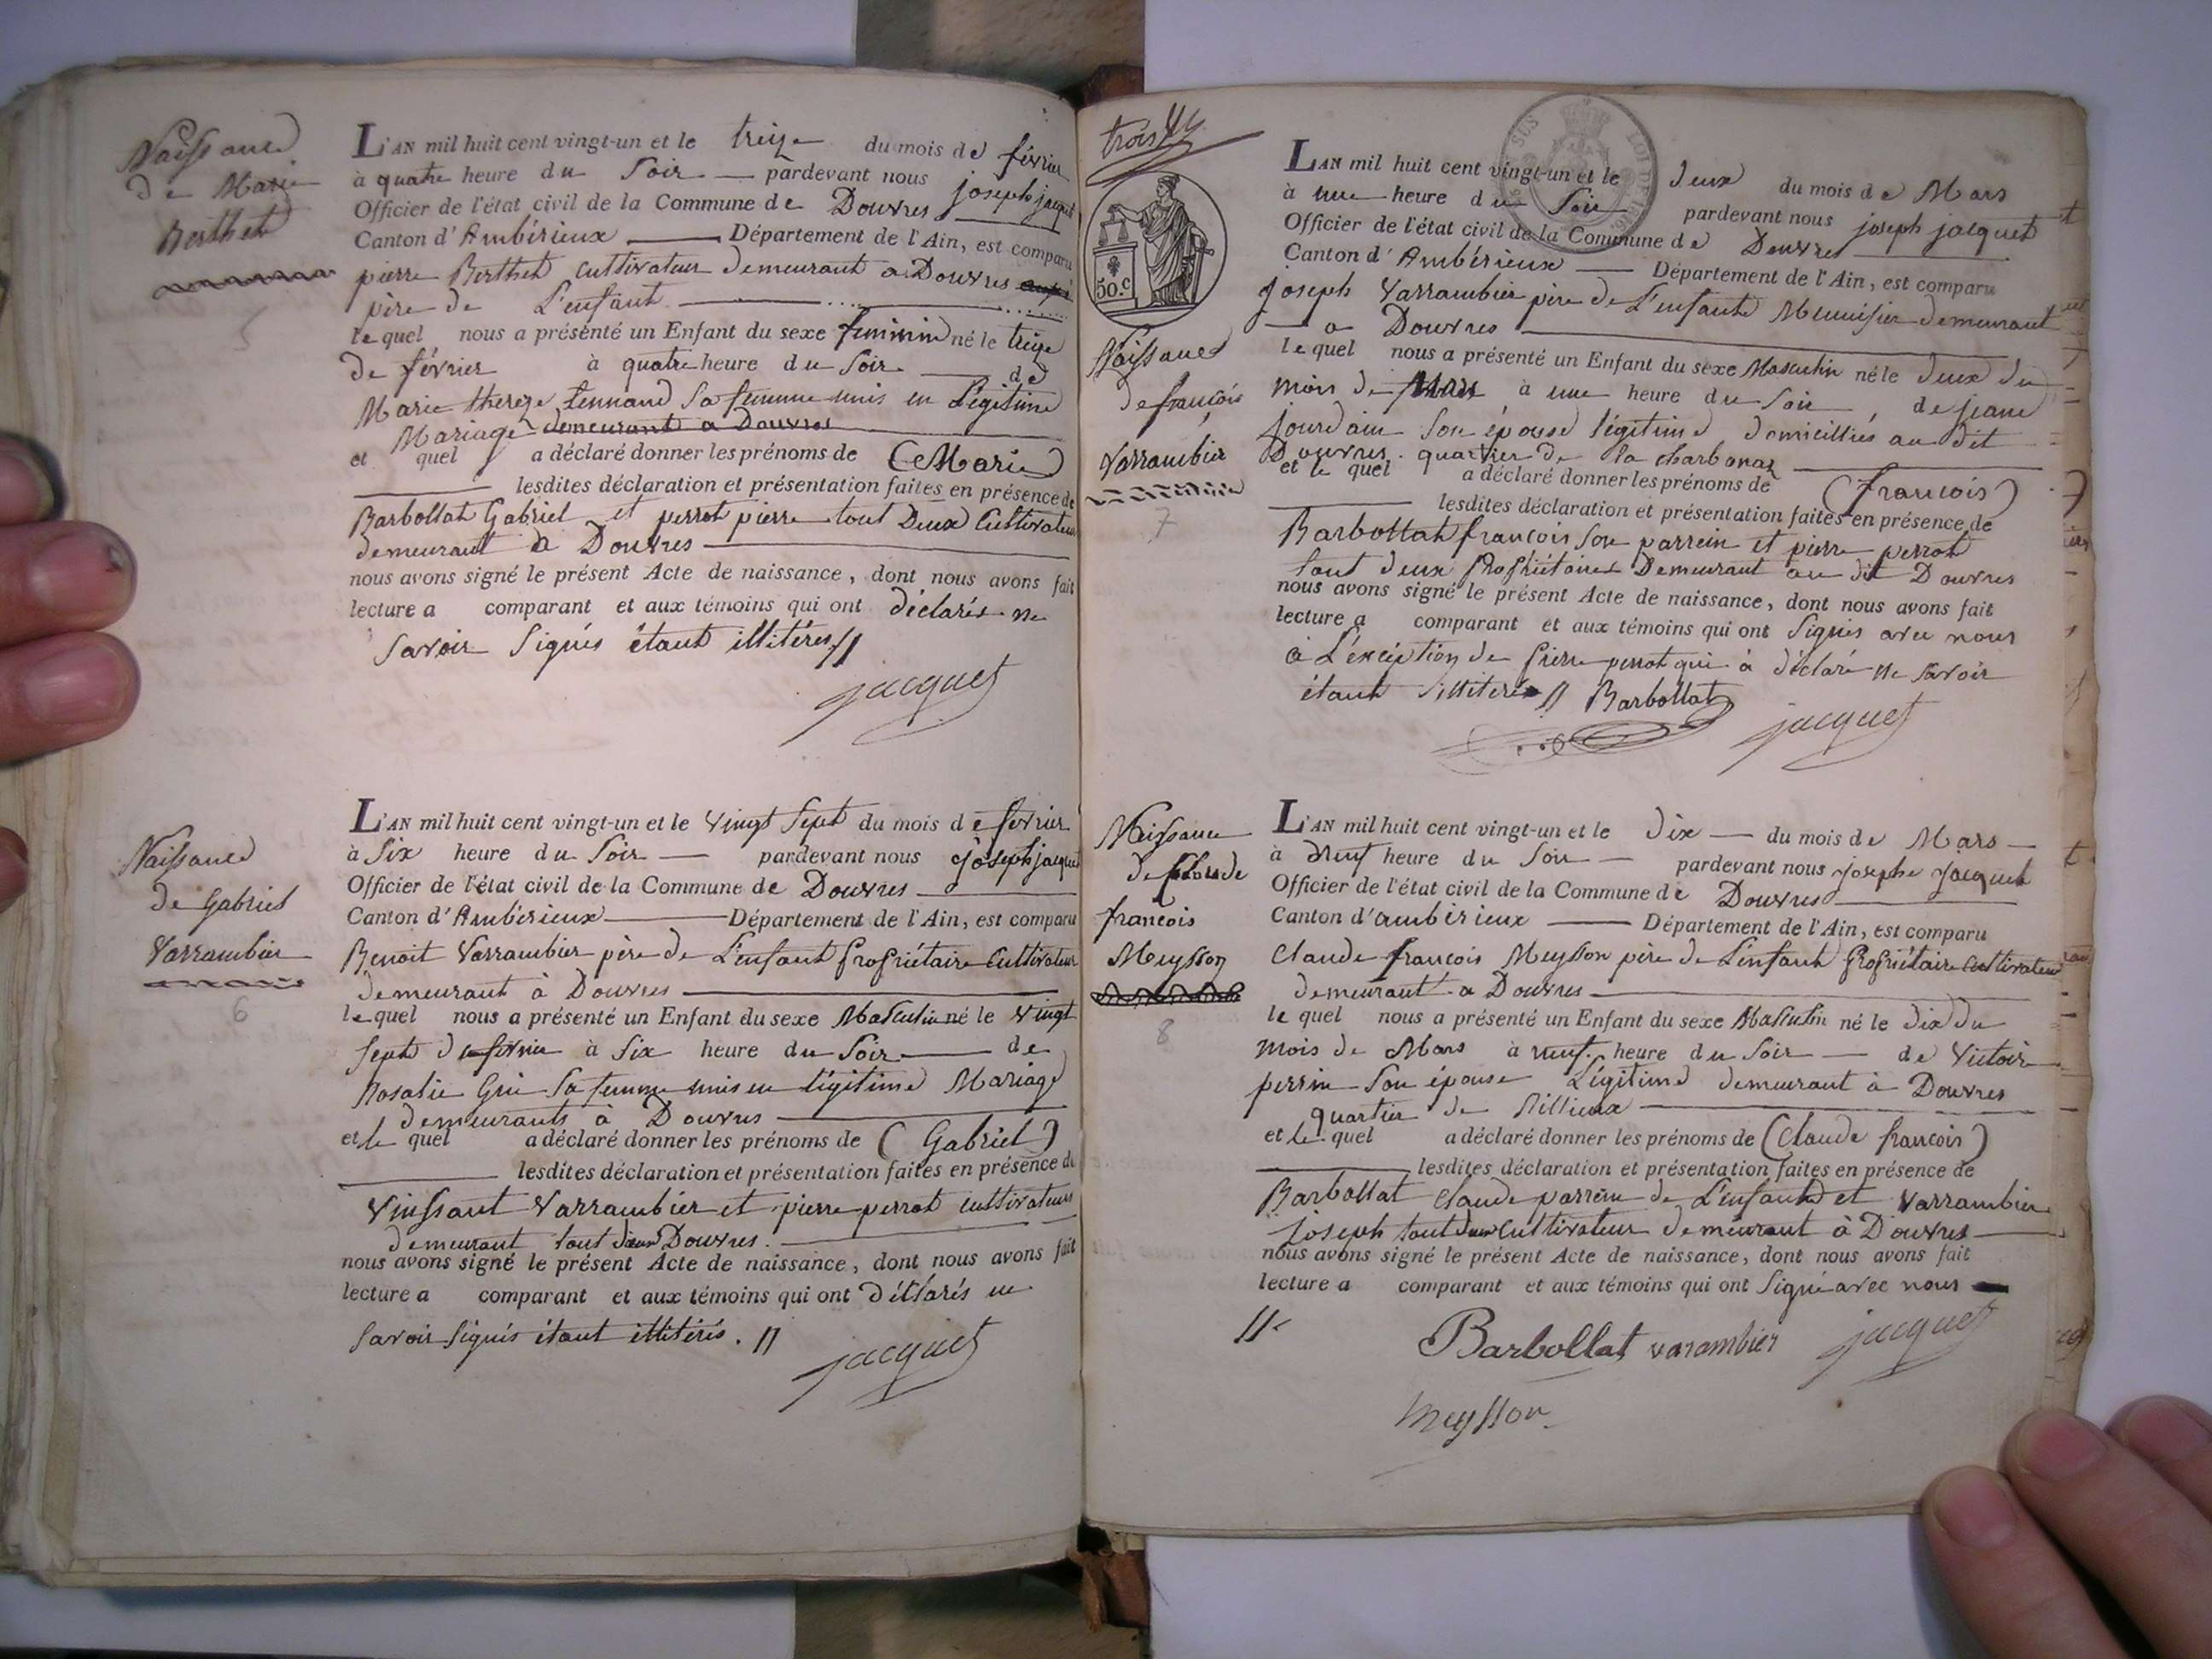 Naissance
de Marie
Berthet
5
L'AN mil huit cent vingt-un et le treize du mois de février
à quatre heure du Soir pardevant nous joseph jacquet
Officier de l'état civil de la Commune de Douvres
Canton d'Ambérieux Département de l'Ain, est comparu
pierre Berthet cultivateur demeurant a Douvres
père de L'enfant
le quel nous a présenté un Enfant du sexe feminin né le treize
de février à quatre heure du Soir de
Marie thereze tennand Sa femme unis en Légitime
Mariage demeurant a Douvres
et quel a déclaré donner les prénoms de (Marie)
lesdites déclaration et présentation faites en présence de
Barbollat Gabriel et perrot pierre tout Deux Cultivateur
demeurant à Douvres
nous avons signé le présent Acte de naissance, dont nous avons fait
lecture a comparant et aux témoins qui ont déclarés ne
Savoir Signés étant illitérés //
jacquet
Naissance
de Gabriel
Varrambier
6
L'AN mil huit cent vingt-un et le vingt Sept du mois de février
à Six heure du Soir pardevant nous joseph jacquet
Officier de l'état civil de la Commune de Douvres
Canton d'Ambérieux Département de l'Ain, est comparu
Benoit Varrambier père de L'enfant Propriétaire Cultivateur
demeurant à Douvres
le quel nous a présenté un Enfant du sexe Masculin né le vingt
Sept de février à Six heure du Soir de
Rosalie Sa femme unis en légitime Mariage
demeurants à Douvres
et le quel a déclaré donner les prénoms de (Gabriel)
lesdites déclaration et présentation faites en présence de
Vinssant Varrambier et pierre perrot cultivateurs
demeurant tout deux Douvres.
nous avons signé le présent Acte de naissance, dont nous avons fait
lecture a comparant et aux témoins qui ont Déclarés ne
Savoir Signés étant illitérés. //
jacquet
trois
50.c
Naissance
de françois
Varrambier
7
L'AN mil huit cent vingt-un et le deux du mois de Mars
à une heure du Soir pardevant nous joseph jacquet
Officier de l'état civil de la Commune de Douvres
Canton d'Ambérieux Département de l'Ain, est comparu
joseph Varrambier père de L'enfant Meunisier demeurant
a Douvres
le quel nous a présenté un Enfant du sexe Masculin né le deux du
mois de Mars à une heure du Soir, de jeane
jourdain Son épouse légitime domicilliés au dit
Douvres. quartier de la charbonaz
et le quel a déclaré donner les prénoms de (françois)
lesdites déclaration et présentation faites en présence de
Barbollat françois Son parrein et pierre perrot
tout deux Propriétaires Demeurant au dit Douvres
nous avons signé le présent Acte de naissance, dont nous avons fait
lecture a comparant et aux témoins qui ont Signés avec nous
à L'exception de Pierre perrot qui à déclaré ne Savoir
étant illitéré // Barbollat
jacquet
Naissance
de Claude
francois
Meysson
8
L'AN mil huit cent vingt-un et le dix du mois de Mars
à neuf heure du Soir pardevant nous josephe jacquet
Officier de l'état civil de la Commune de Douvres
Canton d'ambérieux Département de l'Ain, est comparu
Claude francois Meysson père de L'enfant Propriétaire cultivateur
demeurant a Douvres
le quel nous a présenté un Enfant du sexe Masculin né le dix du
mois de Mars à neuf heure du Soir de Victoire
perrin Son épouse Légitime demeurant à Douvres
quartier de Rillieux
et le quel a déclaré donner les prénoms de (Claude francois)
lesdites déclaration et présentation faites en présence de
Barbollat Claude parrein de L'enfant et Varrambier
joseph tout deux Cultivateur demeurant à Douvres
nous avons signé le présent Acte de naissance, dont nous avons fait
lecture a comparant et aux témoins qui ont Signé avec nous
//
Barbollat varambier jacquet
meysson